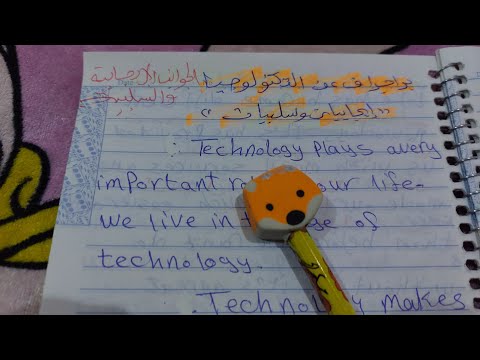 الجوانب الايجابية
والسلبية
براجراف عن التكنولوجيا
"ايجابيات وسلبيات"
: Technology plays avery
important our life.
we live in of
technology.
. Technology makes